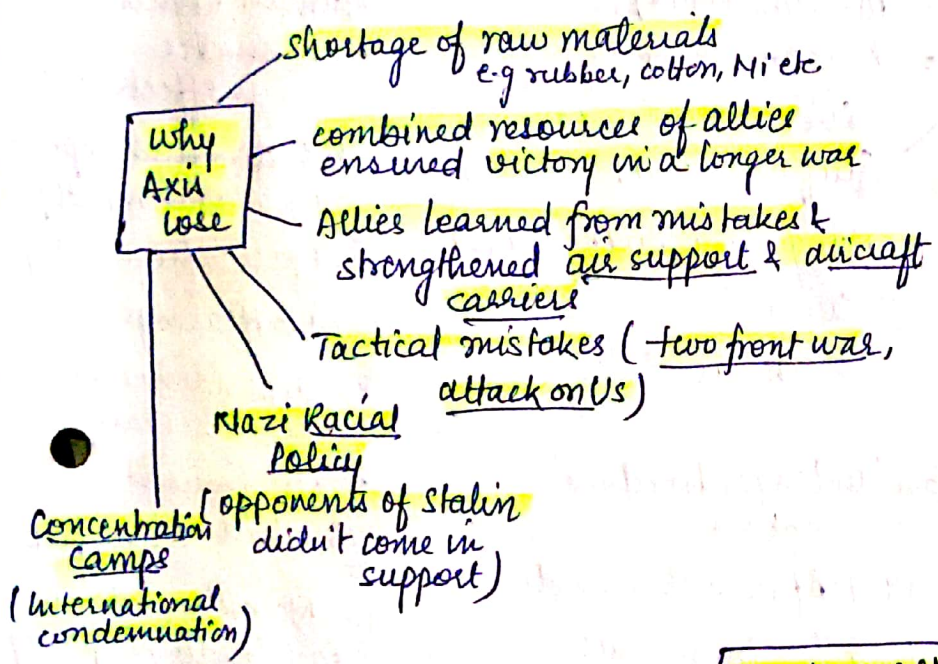 shortage of raw materials
e.g rubber, cotton, Ni etc
Why
Axis
lose
combined resources of allies
ensured victory in a longer war
Allies learned from mistakes &
strengthened air support & aircraft
carriers
Tactical mistakes (two front war,
attack on Us)
Nazi Racial
Policy
(opponents of Stalin
didn't come in
support)
Concentration
Camps
(International
condemnation)